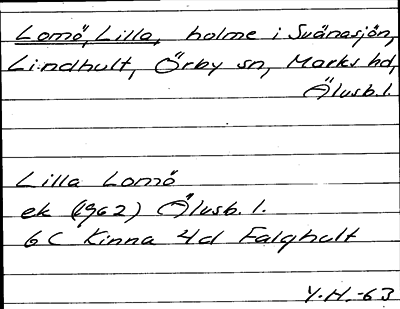 Lomö, Lilla, holme i Svänasjön,
Lindhult, Örby sn, Marks hd,
Älvsb.l.
Lilla Lomö
ek (1962) Älvsb. l.
6C Kinna 4d Falghult
Y.H. -63